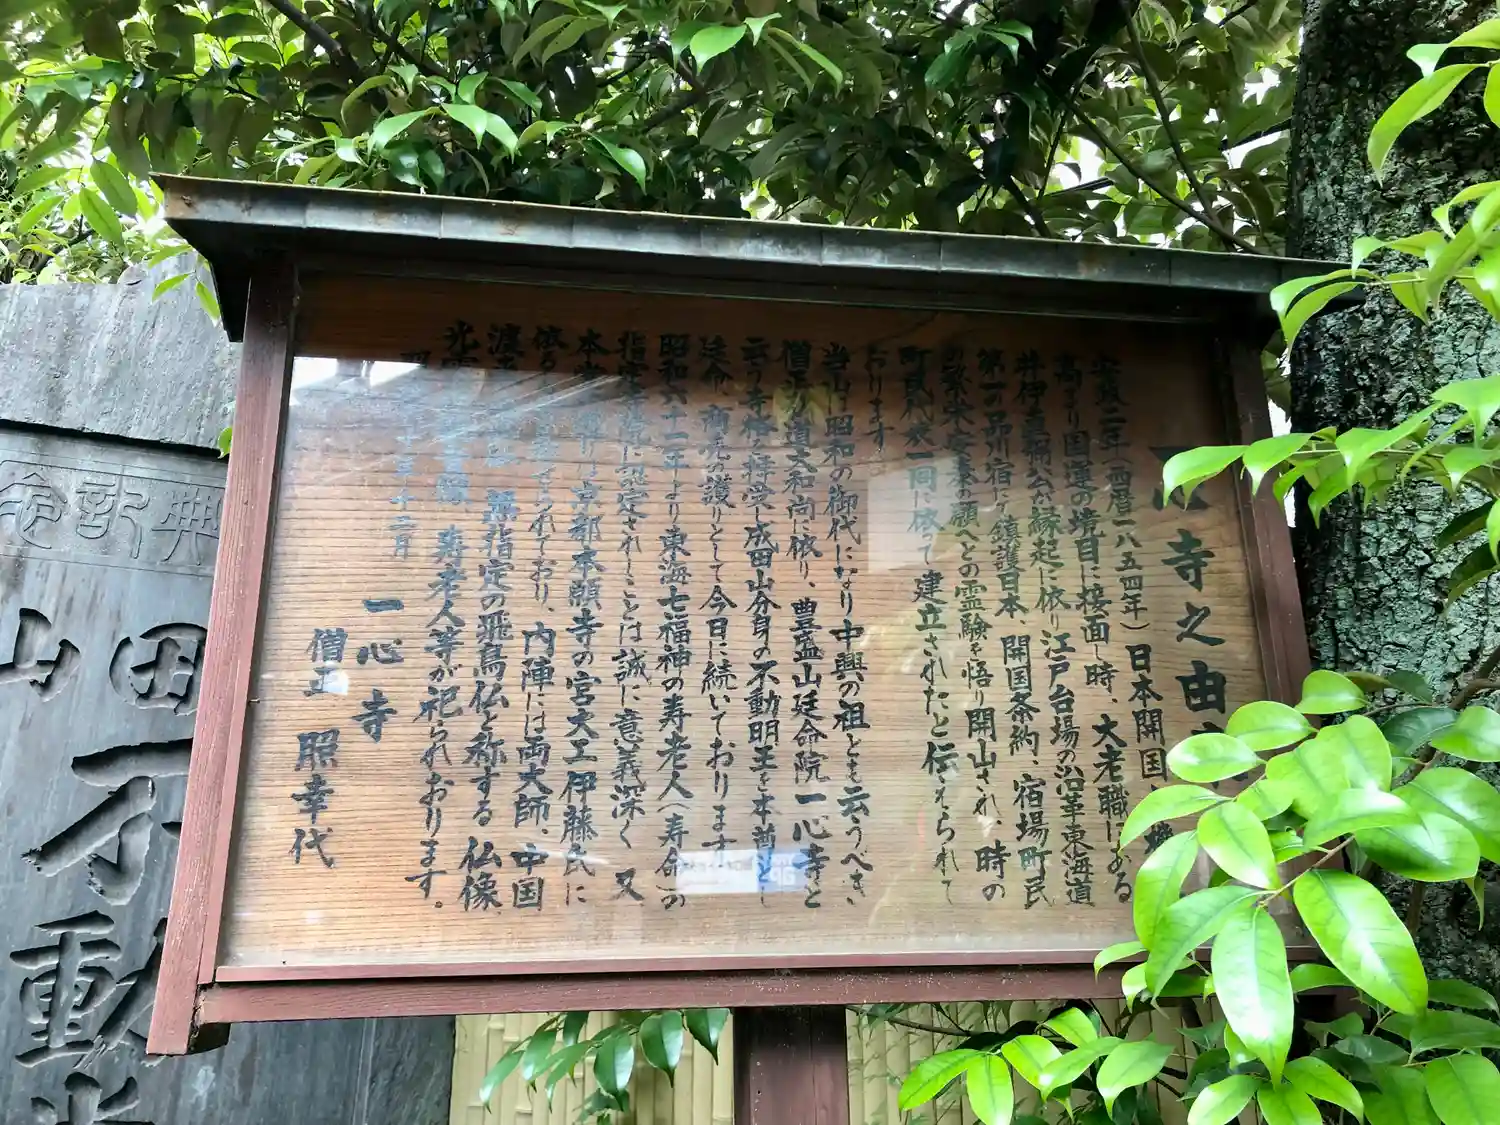 寺之由
安政二年(西暦一八五四年)日本開国
高まり国運の境目に接面し時、大老職にある
井伊直弼公が縁起に依り江戸台場の沿革東海道
第一の品川宿にて鎮護日本、開国条約、宿場町民
の繁栄安泰の願へとの霊験を悟り開山され、時の
町民代衣一同に依って建立されたと伝えられて
おります
当山は昭和の御代になり中興の祖とも云うべき、
僧 弘道大和尚に依り、豊盛山延命院一心寺と
云う寺格を拝受し成田山分身の不動明王を本尊とし
延命、商売の護りとして今日に続いております
昭和六十一年より東海七福神の寿老人(寿命)の
指定 に認定されしことは誠に意義深く 又
本堂 は京都本願寺の宮大工伊藤氏に
依る られており、内陣には両大師、中国
渡 無指定の飛鳥仏と称する 仏像
光 寿老人等が祀られおります。
年十二月
一心寺
僧正 照幸代
典記念
田山
不動